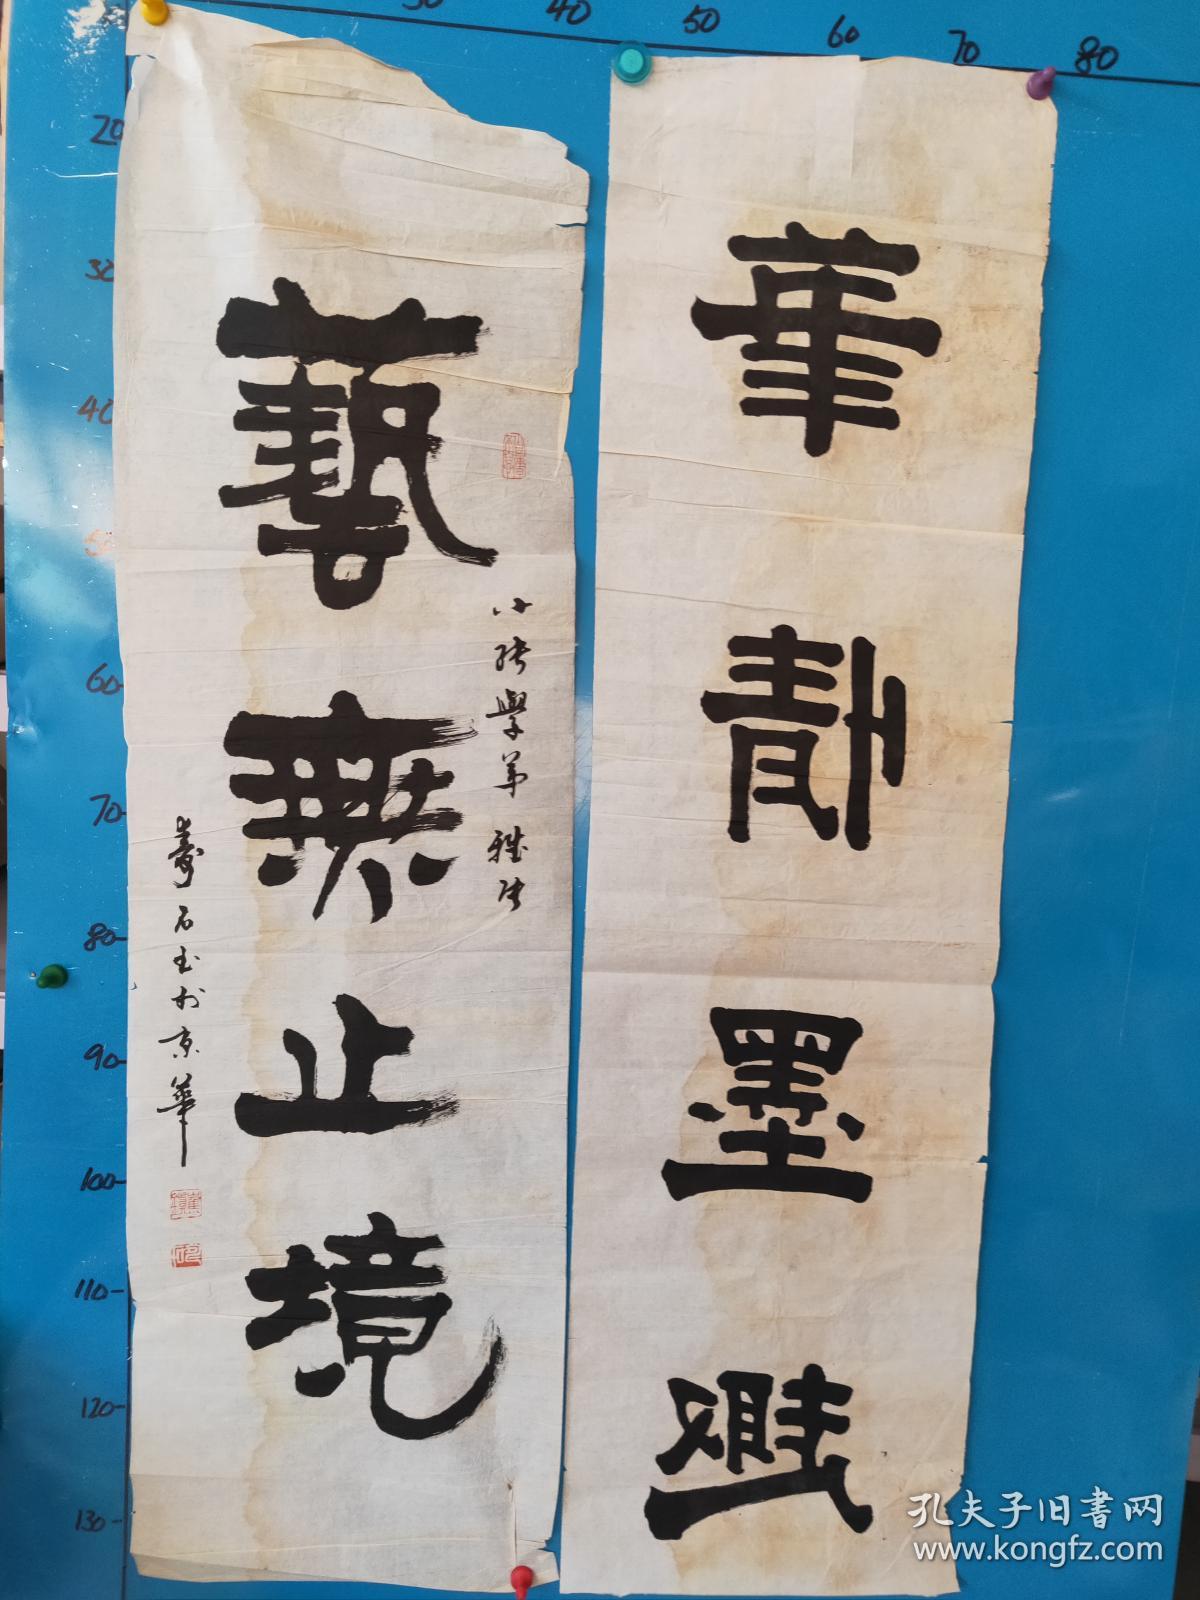 30 40 50 60 70 80
20
30
40
50
60
70
80
90
100
110
120
130
筆情墨趣
學弟雅
藝無止境
石书於京華
孔夫子旧书网
www.kongfz.com